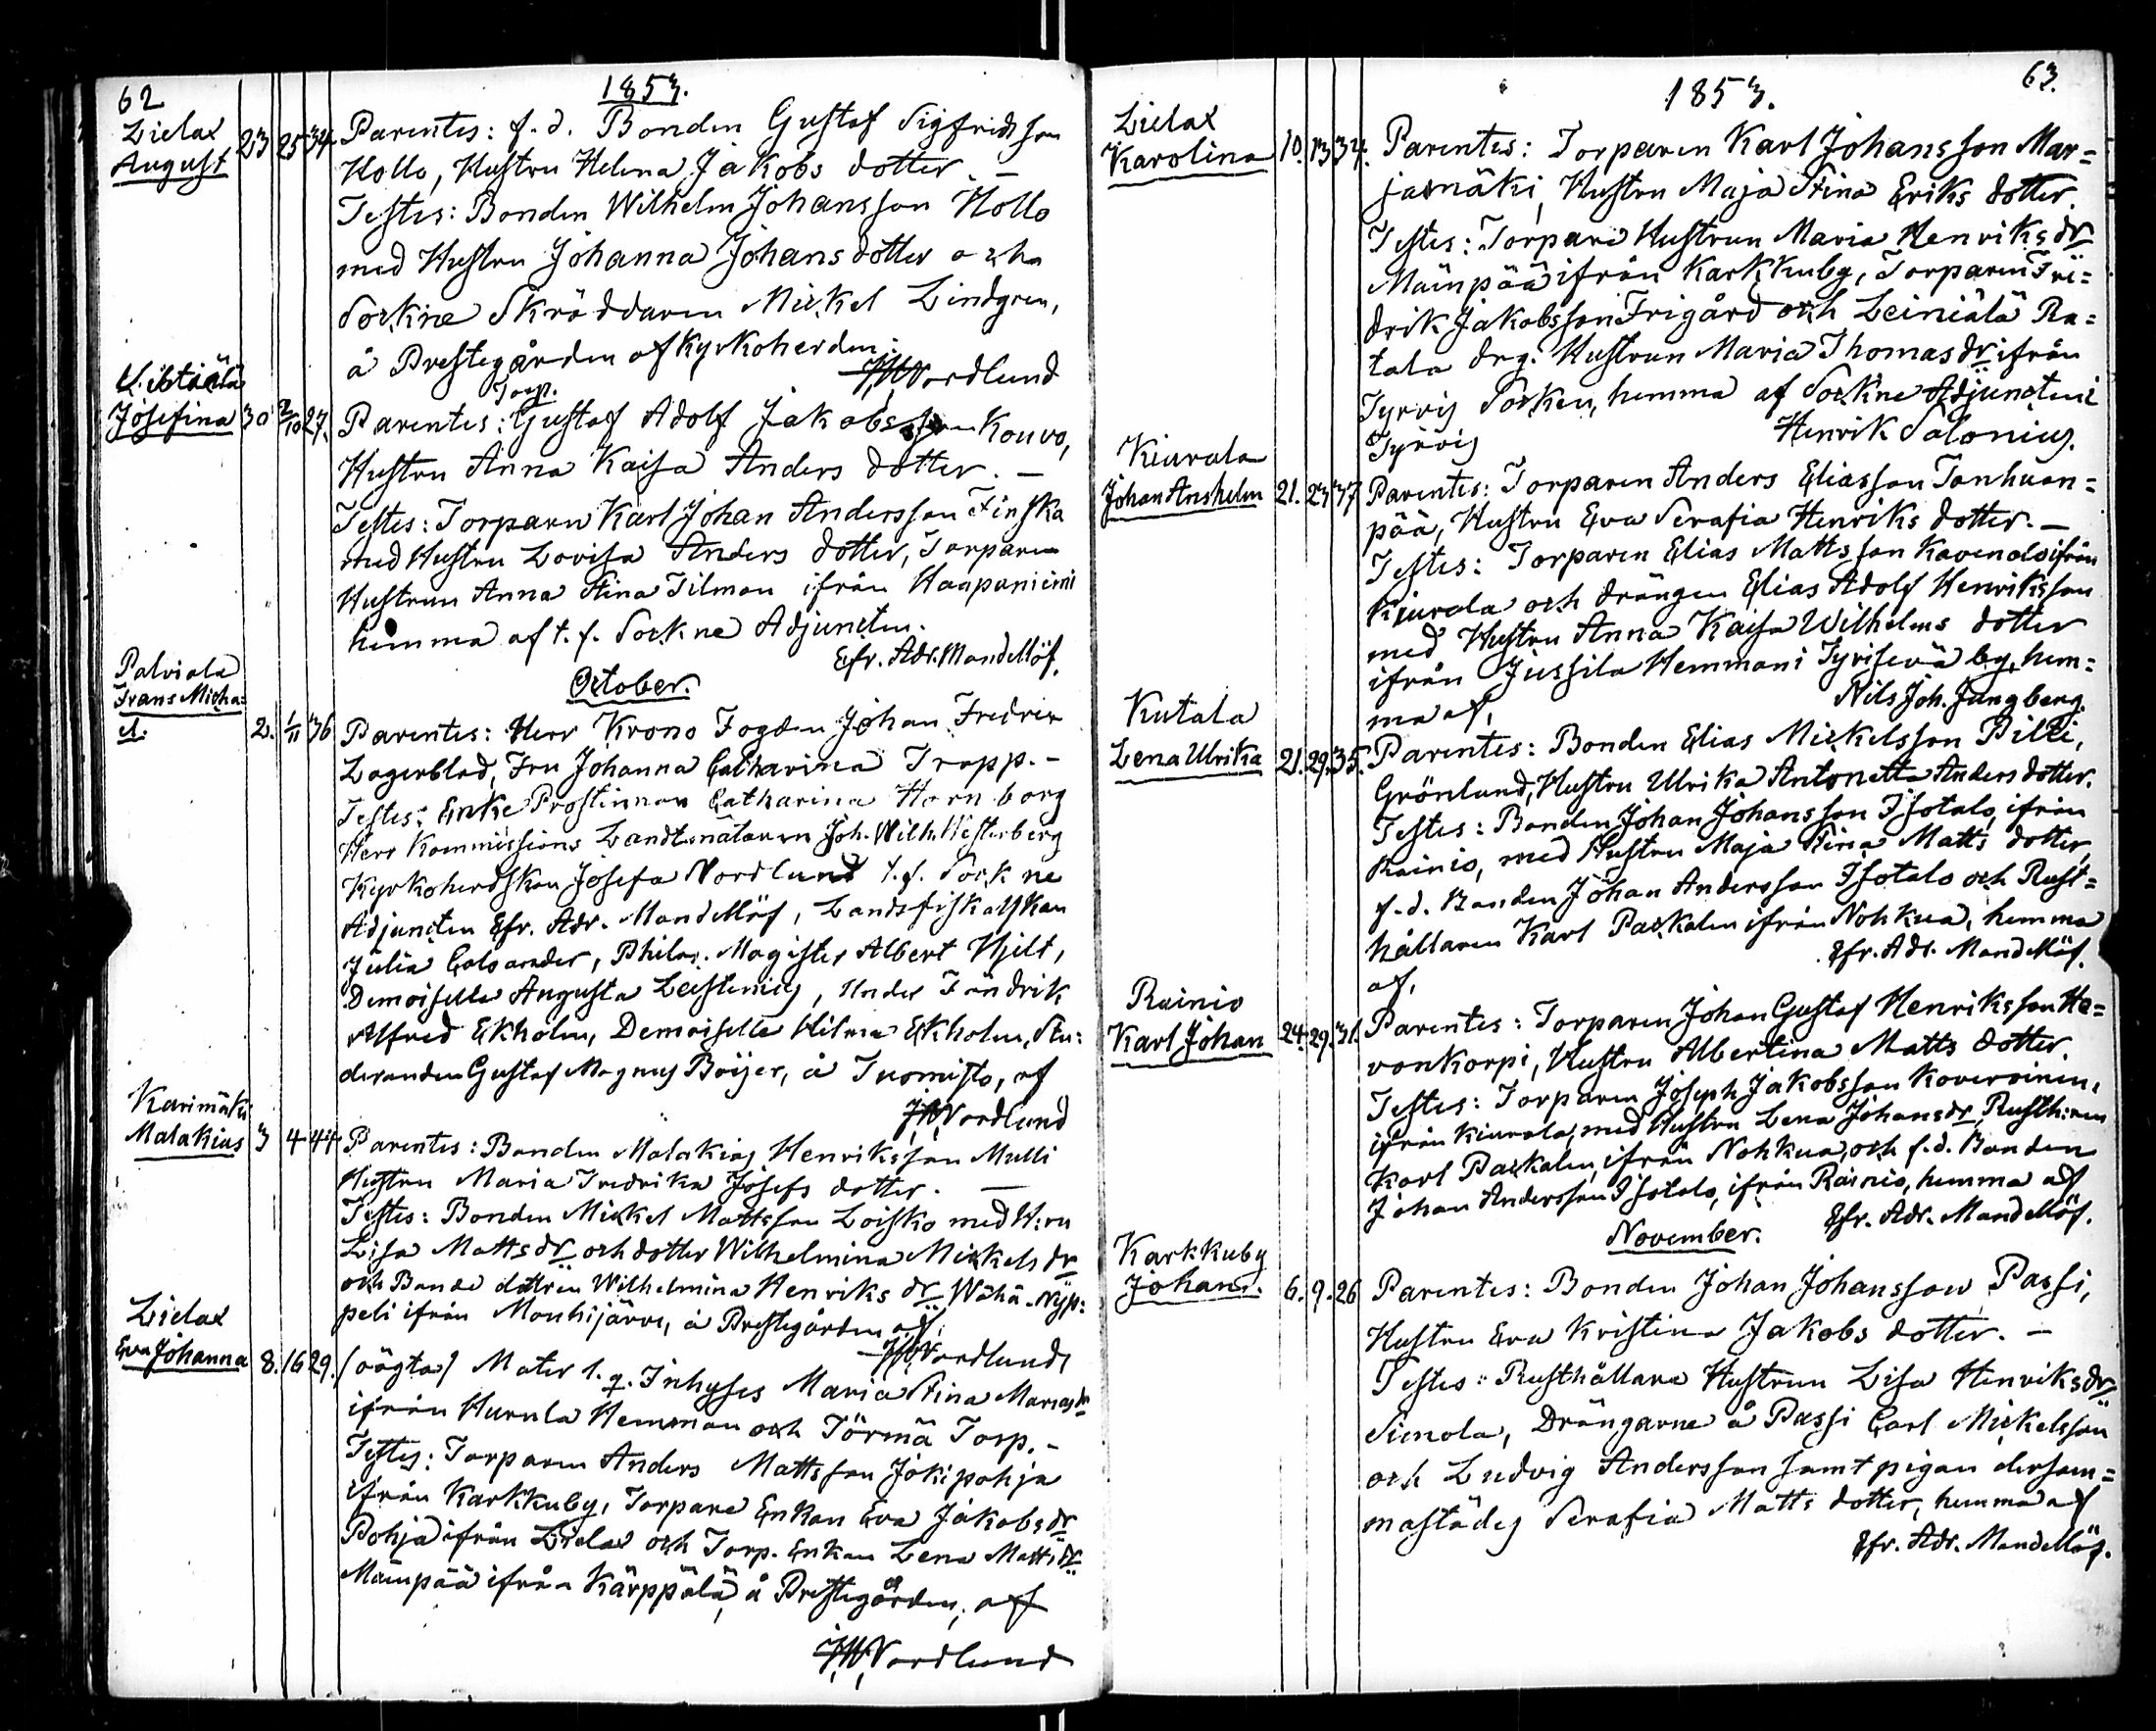 62
1853.
Lielax
August 23 25 34
Parentes: f. d. Bonden Gustaf Sigfridsson
Hollo, Hustru Helena Jakobs dotter. —
Testes: Bonden Wilhelm Johansson Hollo
med Hustru Johanna Johans dotter och
Sockne Skräddaren Mickel Lindgren,
å Prestegården af Kyrkoherden:
JW Nordlund
Josefina 30 2/10 27.
Torp.
Parentes: Gustaf Adolf Jakobsson Kouvo,
Hustru Anna Kaisa Anders dotter. —
Testes: Torparen Karl Johan Andersson Finska
med Hustru Lovisa Anders dotter, Torpare
Hustrun Anna Stina Tilman ifrån Haapaniemi
hemma af t. f. Sockne Adjuncten.
Efr. Adr. Mandellöf.
October.
Palviala
Frans Micha=
el. 2. 1/11 36
Parentes: Herr Krono Fogden Johan Fredrik
Lagerblad, Fru Johanna Catharina Trapp. —
Testes: Enke Prostinnan Catharina Hornborg
Herr Kommissions Landtmätaren Joh. Wilh. Westerberg
Kyrkoherdskan Josefa Nordlund t. f. Sockne
Adjuncten Efr. Adr. Mandellöf, Landsfiskalskan
Julia Calander, Philos. Magister Albert Hjelt,
Demoiselle Augusta Leistenius, Under Fändrik
Alfred Ekholm, Demoiselle Hilma Ekholm, Stu:
deranden Gustaf Magnus Böijer, å Tuomisto, af
JW Nordlund
Karimäki
Malakias 3 4 44
Parentes: Bonden Malakias Henriksson Mulli
Hustru Maria Fredrika Josefs dotter. —
Testes: Bonden Mickel Mattsson Loisko med H:ru
Lisa Matts dr och dotter Wilhelmina Mickels dr
och Bonde dottren Wilhelmina Henriks dr Wähä-Nyp:
peli ifrån Mouhijärvi, å Prestegården af.
JW Nordlund
Lielax
Eva Johanna 8. 16 29.
(oägta) Mater l. q. Inhyses Maria Stina Marias dr
ifrån Hurula Hemman och Törmä Torp. —
Testes: Torparen Anders Mattsson Jokipohja
ifrån Karkkuby, Torpare Enkan Eva Jakobs dr
Pohja ifrån Lielax och Torp. Enkan Lena Matts dr
Mäenpää ifrån Kärppälä, å Prestegården, af
JW Nordlund
63.
1853.
Lielax
Karolina 10. 13 34.
Parentes: Torparen Karl Johansson Mar=
jamäki, Hustru Maja Stina Eriks dotter.
Testes: Torpare Hustrun Maria Henriks dr
Mäenpää ifrån Karkkuby, Torparen Fre=
drik Jakobsson Frigård och Leiniälä Ra=
tala drg. Hustrun Maria Thomas dr ifrån
Tyrvis Socken, hemma af Sockne Adjuncten i
Tyrvis
Henrik Salonius.
Kiurala
Johan Anshelm 21. 23 37
Parentes: Torparen Anders Eliasson Tanhuan=
pää, Hustru Eva Serafia Henriks dotter. —
Testes: Torparen Elias Mattsson Kavenolo ifrån
Kiurala och drängen Elias Adolf Henriksson
med Hustru Anna Kaisa Wilhelms dotter
ifrån Jussila Hemman i Tyrisevä by, hem=
ma af,
Nils Joh. Jungberg.
Kutala
Lena Ulrika 21. 29. 35.
Parentes: Bonden Elias Mickelsson Pilli,
Grönlund, Hustru Ulrika Antonetta Anders dotter.
Testes: Bonden Johan Johansson Isotalo ifrån
Rainio, med Hustru Maja Stina Matts dotter,
f. d. Bonden Johan Andersson Isotalo och Rust=
hållaren Karl Packalen ifrån Nohkua, hemma
af,
Efr. Adr. Mandellöf.
Rainio
Karl Johan 24. 29. 31.
Parentes: Torparen Johan Gustaf Henriksson He=
vonkorpi, Hustru Albertina Matts dotter.
Testes: Torparen Joseph Jakobsson Koveroinen,
ifrån Kiurala, med Hustru Lena Johans dr, Rusth:ren
Karl Packalen, ifrån Nohkua, och f. d. Bonden
Johan Andersson Isotalo, ifrån Rainio, hemma af
Efr. Adr. Mandellöf.
November.
Karkkuby
Johan. 6. 9. 26
Parentes: Bonden Johan Johansson Passi,
Hustru Eva Kristina Jakobs dotter. —
Testes: Rusthållare Hustrun Lisa Henriks dr
Simola, Drängarne å Passi Carl Mickelsson
och Ludvig Andersson samt pigan dersam=
mastädes Serafia Matts dotter, hemma af
Efr. Adr. Mandellöf.